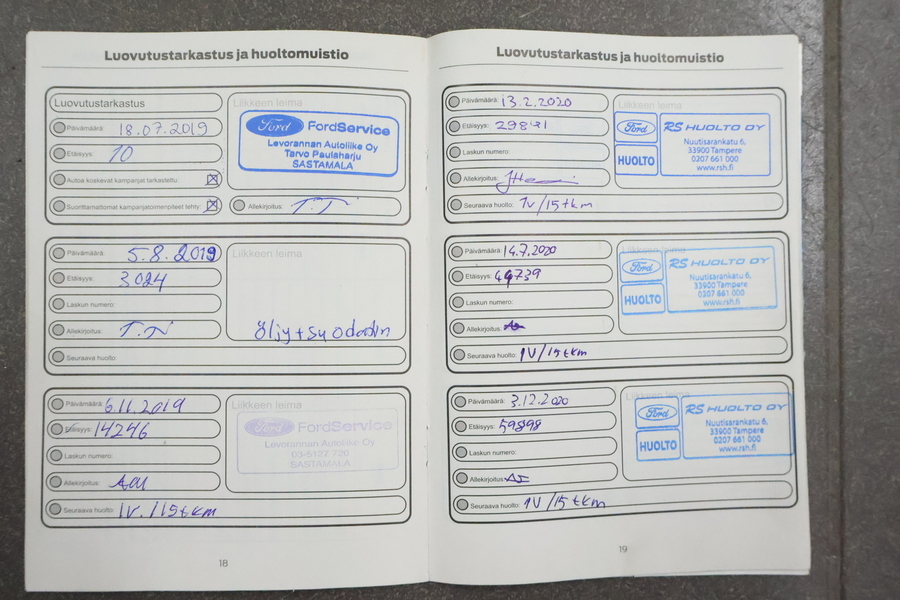 Luovutustarkastus ja huoltomuistio
Luovutustarkastus
Liikkeen leima
Päivämäärä: 18.07.2019
Etäisyys: 10
Autoa koskevat kampanjat tarkastettu:
Suorittamattomat kampanjatoimenpiteet tehty:
Ford FordService
Levorannan Autoliike Oy
Tarvo Paulaharju
SASTAMALA
Allekirjoitus: T.T
Päivämäärä: 5.8.2019
Etäisyys: 3024
Laskun numero:
Allekirjoitus:
Seuraava huolto:
Liikkeen leima
Öljy+suodatin
Päivämäärä: 6.11.2019
Etäisyys: 14246
Laskun numero:
Allekirjoitus:
Seuraava huolto: 1V./15tkm
Liikkeen leima
Ford FordService
Levorannan Autoliike Oy
03-5127 720
SASTAMALA
18
Luovutustarkastus ja huoltomuistio
Päivämäärä: 13.2.2020
Etäisyys:
Laskun numero:
Allekirjoitus:
Seuraava huolto: 1V/15tkm
Liikkeen leima
Ford
HUOLTO
RS HUOLTO OY
Nuutisarankatu 6,
33900 Tampere
0207 661 000
www.rsh.fi
Päivämäärä: 14.7.2020
Etäisyys: 44739
Laskun numero:
Allekirjoitus:
Seuraava huolto: 1V/15tkm
Liikkeen leima
Ford
HUOLTO
RS HUOLTO OY
Nuutisarankatu 6,
33900 Tampere
0207 661 000
www.rsh.fi
Päivämäärä: 3.12.2020
Etäisyys: 59898
Laskun numero:
Allekirjoitus:
Seuraava huolto: 1V/15tkm
Liikkeen leima
Ford
HUOLTO
RS HUOLTO OY
Nuutisarankatu 6,
33900 Tampere
0207 661 000
www.rsh.fi
19